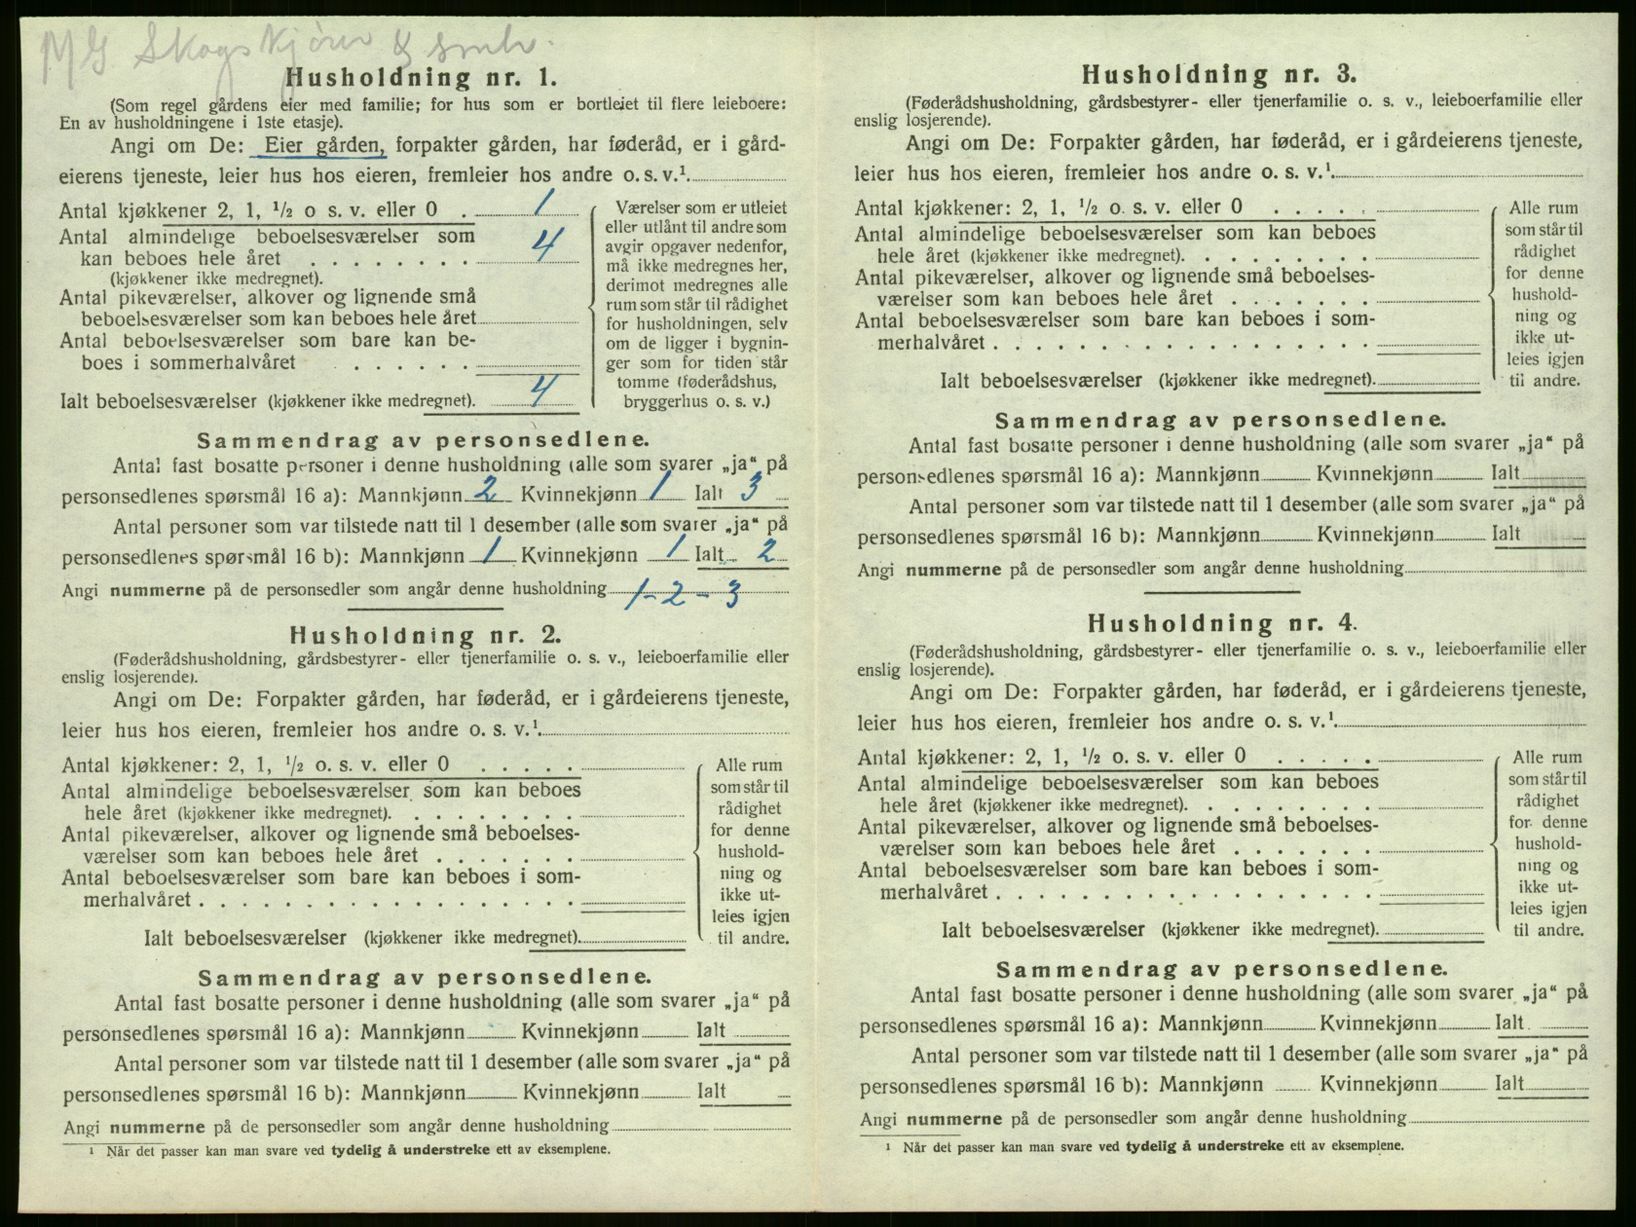 MG. Skogskjører & smbr.
Husholdning nr. 1.
(Som regel gårdens eier med familie; for hus som er bortleiet til flere leieboere:
En av husholdningene i 1ste etasje).
Angi om De: Eier gården, forpakter gården, har føderåd, er i gård-
eierens tjeneste, leier hus hos eieren, fremleier hos andre o. s. v.¹.
Antal kjøkkener 2, 1, ½ o s. v. eller 0 . 1
Antal almindelige beboelsesværelser som
kan beboes hele året . . . . . . . . 4
(kjøkkener ikke medregnet).
Antal pikeværelser, alkover og lignende små
beboelsesværelser som kan beboes hele året
Antal beboelsesværelser som bare kan be-
boes i sommerhalvåret . . . . . .
Ialt beboelsesværelser (kjøkkener ikke medregnet). 4
Værelser som er utleiet
eller utlånt til andre som
avgir opgaver nedenfor,
må ikke medregnes her,
derimot medregnes alle
rum som står til rådighet
for husholdningen, selv
om de ligger i bygnin-
ger som for tiden står
tomme (føderådshus,
bryggerhus o. s. v.)
Sammendrag av personsedlene.
Antal fast bosatte personer i denne husholdning (alle som svarer „ja“ på
personsedlenes spørsmål 16 a): Mannkjønn 2 Kvinnekjønn 1 Ialt 3
Antal personer som var tilstede natt til 1 desember (alle som svarer „ja“ på
personsedlenes spørsmål 16 b): Mannkjønn 1 Kvinnekjønn 1 Ialt 2
Angi nummerne på de personsedler som angår denne husholdning 1-2-3
Husholdning nr. 2.
(Føderådshusholdning, gårdsbestyrer- eller tjenerfamilie o. s. v., leieboerfamilie eller
enslig losjerende).
Angi om De: Forpakter gården, har føderåd, er i gårdeierens tjeneste,
leier hus hos eieren, fremleier hos andre o. s. v.¹.
Antal kjøkkener: 2, 1, ½ o. s. v. eller 0 . . . . .
Antal almindelige beboelsesværelser som kan beboes
hele året (kjøkkener ikke medregnet). . . . . . . . .
Antal pikeværelser, alkover og lignende små beboelses-
værelser som kan beboes hele året . . . . . . .
Antal beboelsesværelser som bare kan beboes i som-
merhalvåret . . . . . . . . . . . . . . . . .
Ialt beboelsesværelser (kjøkkener ikke medregnet).
Alle rum
som står til
rådighet
for denne
hushold-
ning og
ikke ut-
leies igjen
til andre.
Sammendrag av personsedlene.
Antal fast bosatte personer i denne husholdning (alle som svarer „ja“ på
personsedlenes spørsmål 16 a): Mannkjønn Kvinnekjønn Ialt
Antal personer som var tilstede natt til 1 desember (alle som svarer „ja“ på
personsedlenes spørsmål 16 b): Mannkjønn Kvinnekjønn Ialt
Angi nummerne på de personsedler som angår denne husholdning
¹ Når det passer kan man svare ved tydelig å understreke ett av eksemplene.
Husholdning nr. 3.
(Føderådshusholdning, gårdsbestyrer- eller tjenerfamilie o. s. v., leieboerfamilie eller
enslig losjerende).
Angi om De: Forpakter gården, har føderåd, er i gårdeierens tjeneste,
leier hus hos eieren, fremleier hos andre o. s. v.¹.
Antal kjøkkener: 2, 1, ½ o. s. v. eller 0 . . . . .
Antal almindelige beboelsesværelser som kan beboes
hele året (kjøkkener ikke medregnet). . . . . . . . .
Antal pikeværelser, alkover og lignende små beboelses-
værelser som kan beboes hele året . . . . . . .
Antal beboelsesværelser som bare kan beboes i som-
merhalvåret . . . . . . . . . . . . . . . . .
Ialt beboelsesværelser (kjøkkener ikke medregnet).
Alle rum
som står til
rådighet
for denne
hushold-
ning og
ikke ut-
leies igjen
til andre.
Sammendrag av personsedlene.
Antal fast bosatte personer i denne husholdning (alle som svarer „ja“ på
personsedlenes spørsmål 16 a): Mannkjønn Kvinnekjønn Ialt
Antal personer som var tilstede natt til 1 desember (alle som svarer „ja“ på
personsedlenes spørsmål 16 b): Mannkjønn Kvinnekjønn Ialt
Angi nummerne på de personsedler som angår denne husholdning
Husholdning nr. 4.
(Føderådshusholdning, gårdsbestyrer- eller tjenerfamilie o. s. v., leieboerfamilie eller
enslig losjerende).
Angi om De: Forpakter gården, har føderåd, er i gårdeierens tjeneste,
leier hus hos eieren, fremleier hos andre o. s. v.¹.
Antal kjøkkener: 2, 1, ½ o. s. v. eller 0 . . . . .
Antal almindelige beboelsesværelser som kan beboes
hele året (kjøkkener ikke medregnet). . . . . . . . .
Antal pikeværelser, alkover og lignende små beboelses-
værelser som kan beboes hele året . . . . . . .
Antal beboelsesværelser som bare kan beboes i som-
merhalvåret . . . . . . . . . . . . . . . . .
Ialt beboelsesværelser (kjøkkener ikke medregnet).
Alle rum
som står til
rådighet
for denne
hushold-
ning og
ikke ut-
leies igjen
til andre.
Sammendrag av personsedlene.
Antal fast bosatte personer i denne husholdning (alle som svarer „ja“ på
personsedlenes spørsmål 16 a): Mannkjønn Kvinnekjønn Ialt
Antal personer som var tilstede natt til 1 desember (alle som svarer „ja“ på
personsedlenes spørsmål 16 b): Mannkjønn Kvinnekjønn Ialt
Angi nummerne på de personsedler som angår denne husholdning
¹ Når det passer kan man svare ved tydelig å understreke ett av eksemplene.